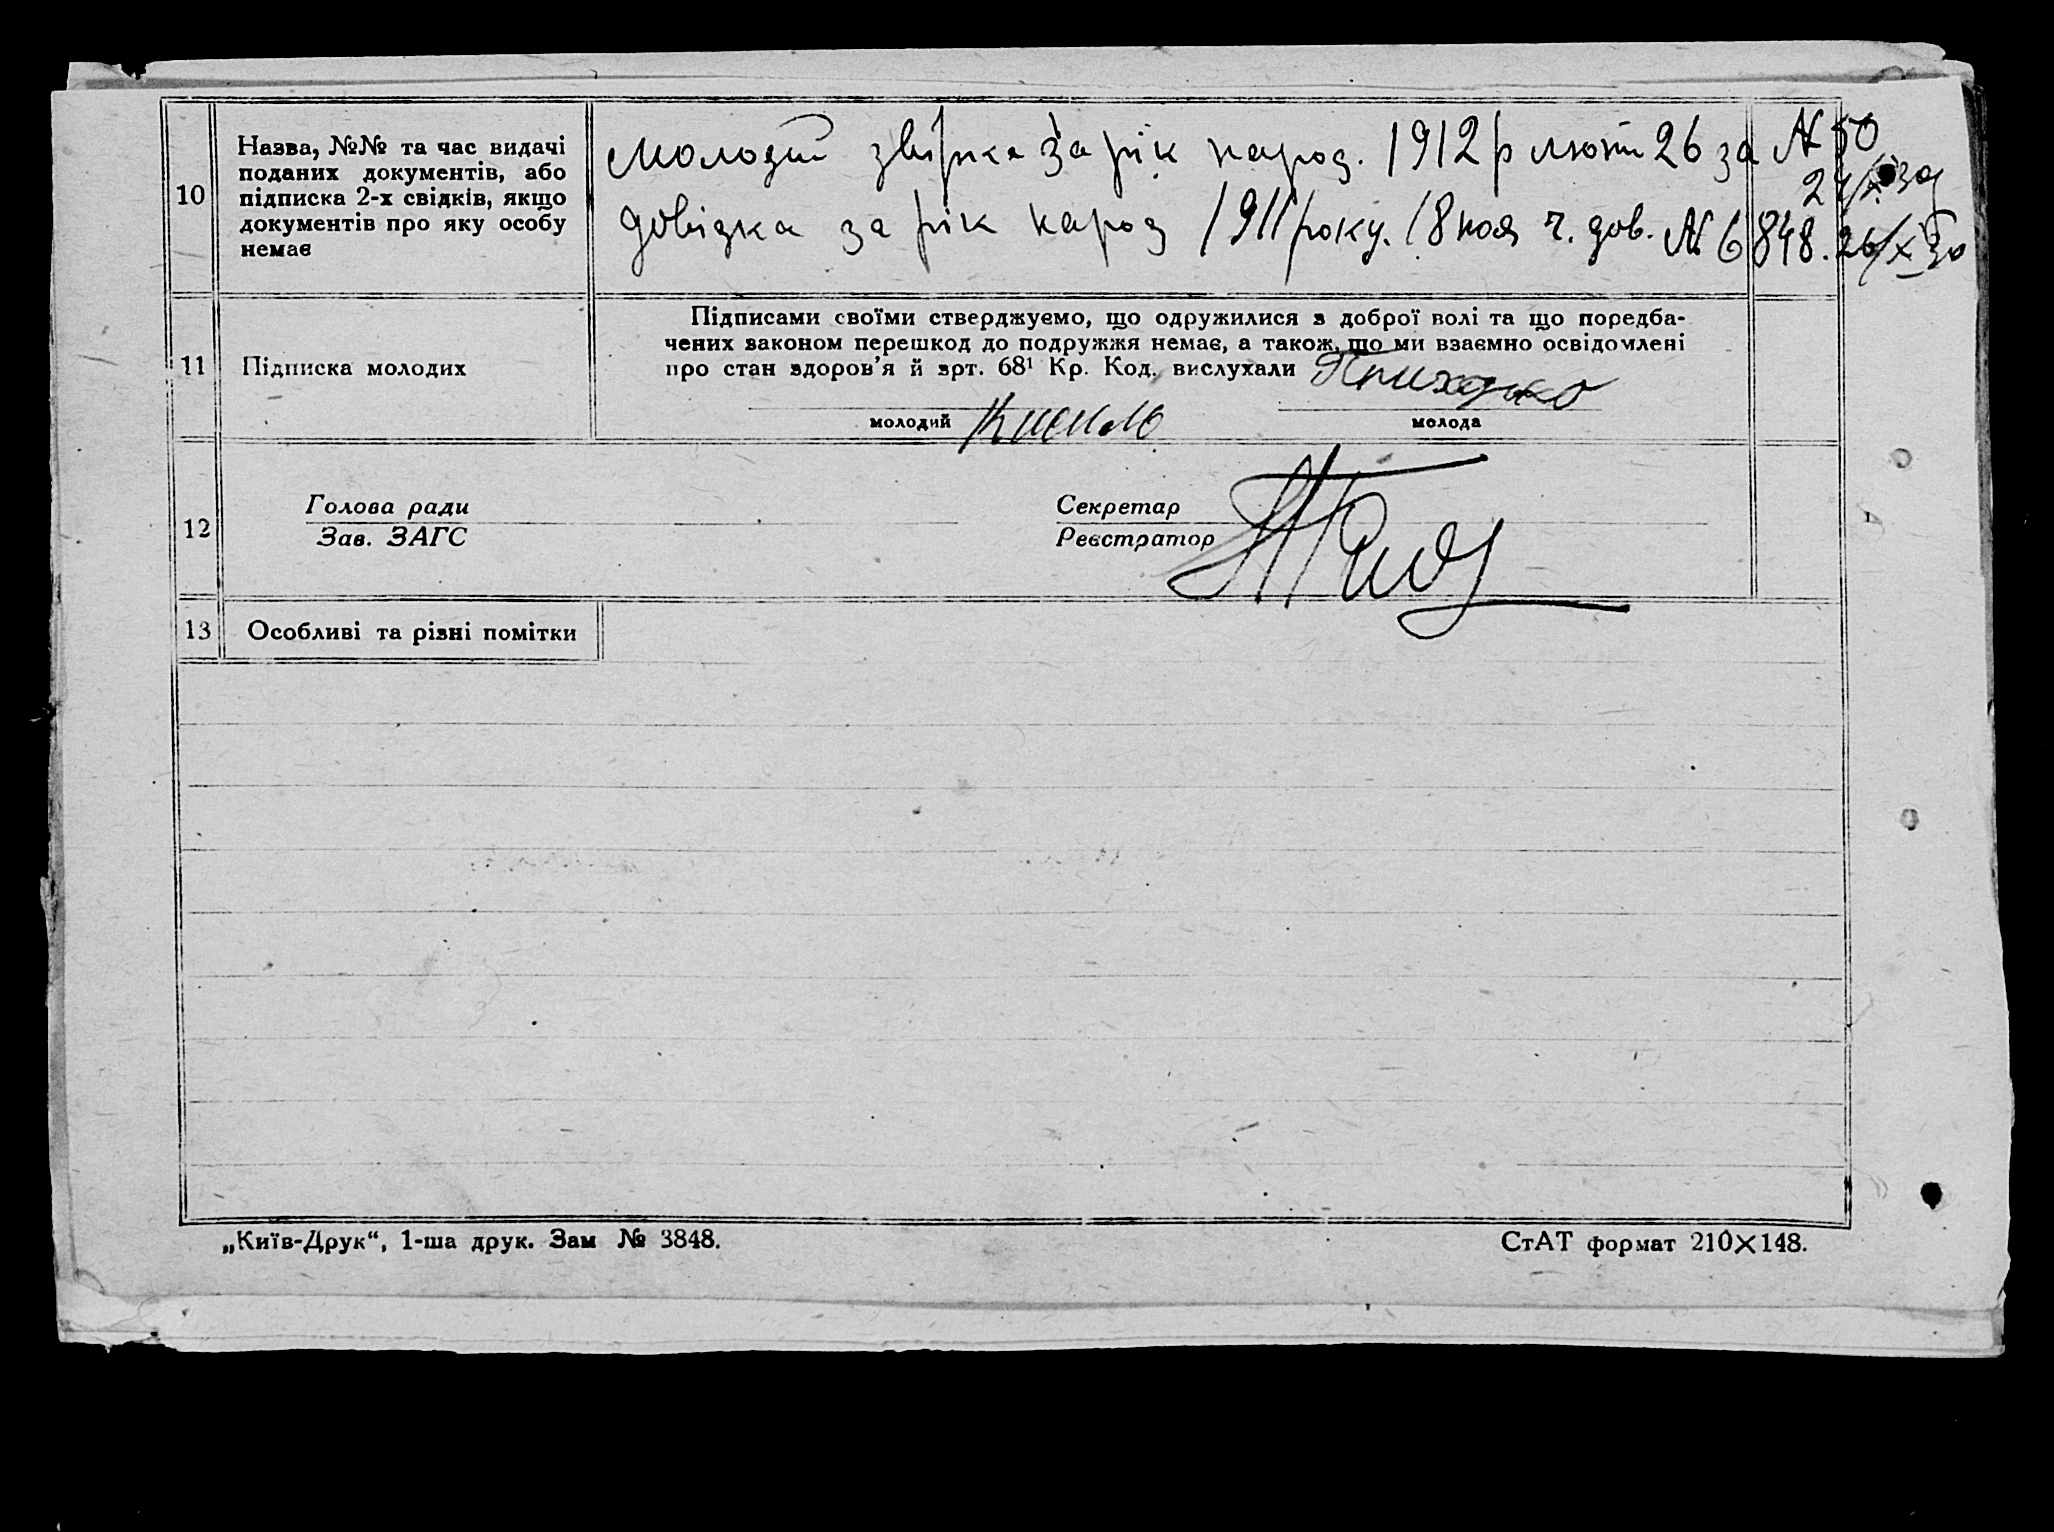 10
Назва, №№ та час видачі
поданих документів, або
підписка 2-х свідків, якщо
документів про яку особу
немає
молодий звірка за рік народ. 1912 р лют 26 за № 50
24/X 30
довідка за рік народ 1911 року. 18 ноя ч. дов. № 6848. 26/X 30
11
Підписка молодих
Підписами своїми стверджуємо, що одружилися з доброї волі та що поредба-
чених законом перешкод до подружжя немає, а також, що ми взаємно освідомлені
про стан здоров'я й зрт. 68¹ Кр. Код. вислухали Приходько
молодий Кисиль
молода
12
Голова ради
Зав. ЗАГС
Секретар
Реєстратор
13
Особливі та різні помітки
„Київ-Друк“, 1-ша друк. Зам № 3848.
СтАТ формат 210×148.